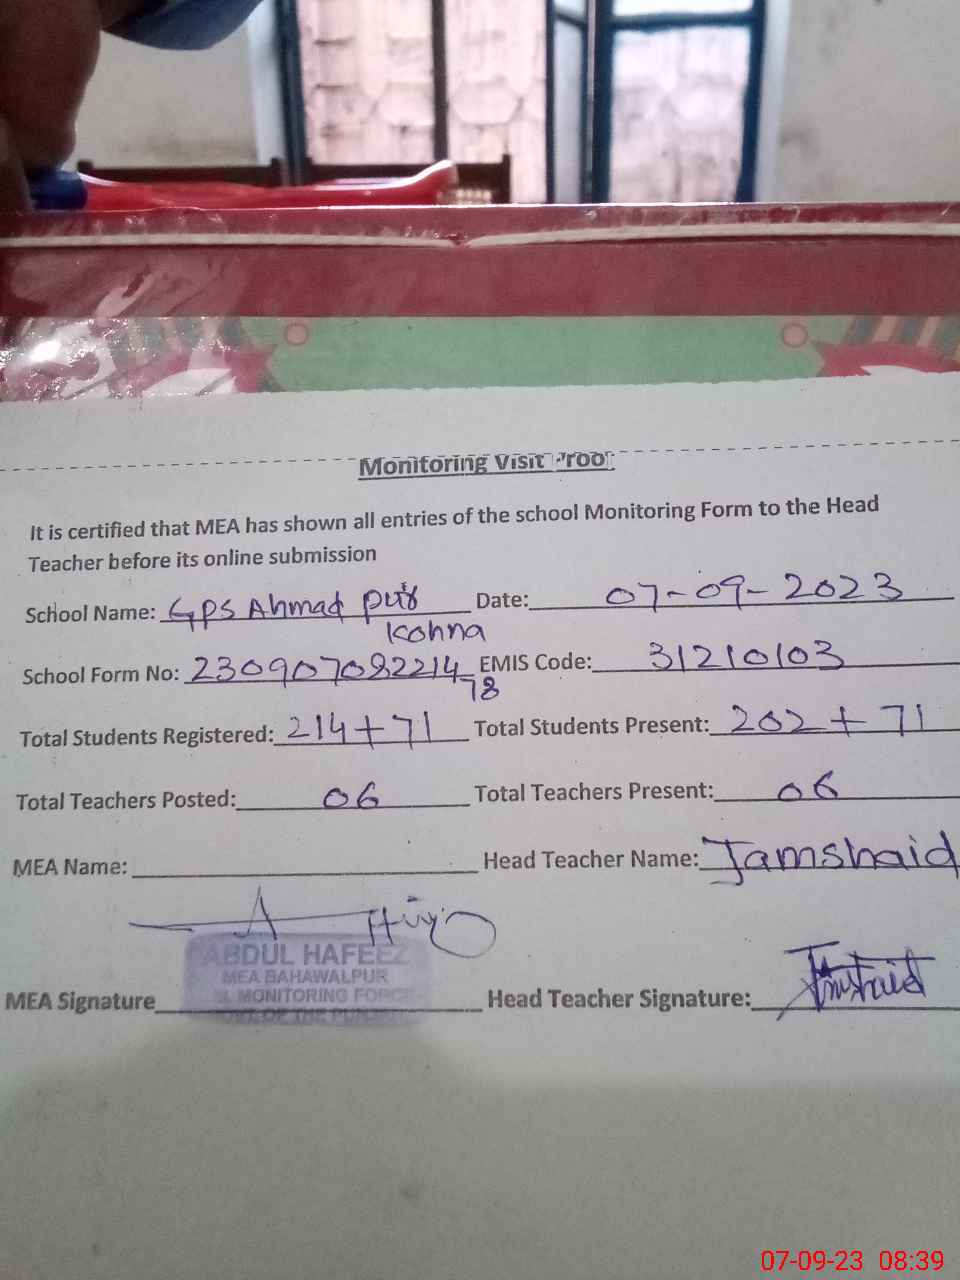 Monitoring Visit Proof
It is certified that MEA has shown all entries of the school Monitoring Form to the Head
Teacher before its online submission
School Name: GPS Ahmad pur Kohna Date: 07-09-2023
School Form No: 23090708221478 EMIS Code: 31210103
Total Students Registered: 214+71 Total Students Present: 202+71
Total Teachers Posted: 06 Total Teachers Present: 06
MEA Name: Head Teacher Name: Jamshaid
ABDUL HAFEEZ
MEA BAHAWALPUR
MONITORING FORCE
GOVT. OF THE PUNJAB
MEA Signature Head Teacher Signature: Jamshaid
07-09-23 08:39